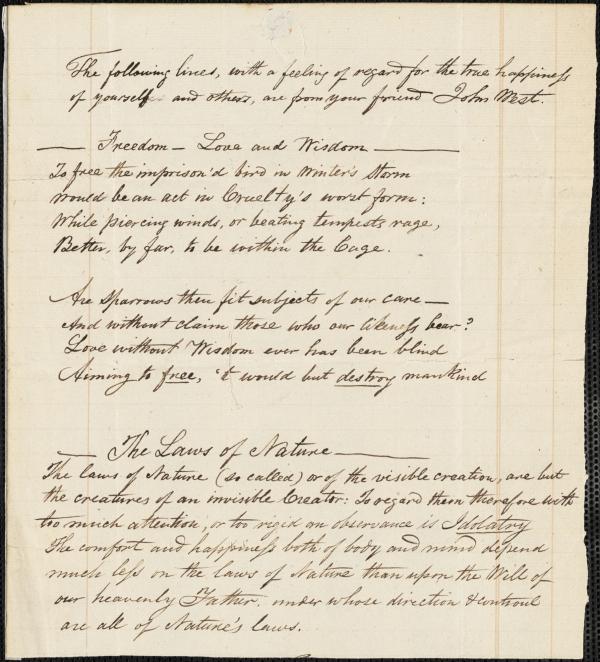 The following lines, with a feeling of regard for the true happiness
of yourself and others, are from your friend John West.
— Freedom — Love and Wisdom —
To free the imprison'd bird in Winter's storm
would be an act in Cruelty's worst form:
While piercing winds, or beating tempests rage,
Better, by far, to be within the Cage.
Are sparrows then fit subjects of our care —
And without claim those who our likeness bear?
Love without Wisdom ever has been blind
Aiming to free, 't would but destroy mankind
— The Laws of Nature —
The laws of Nature (so called) or of the visible creation, are but
the creatures of an invisible Creator: To regard them therefore with
too much attention, or too rigid an observance is Idolatry
The comfort and happiness both of body and mind depend
much less on the laws of Nature than upon the Will of
our heavenly Father, under whose direction & controul
are all of Nature's laws.